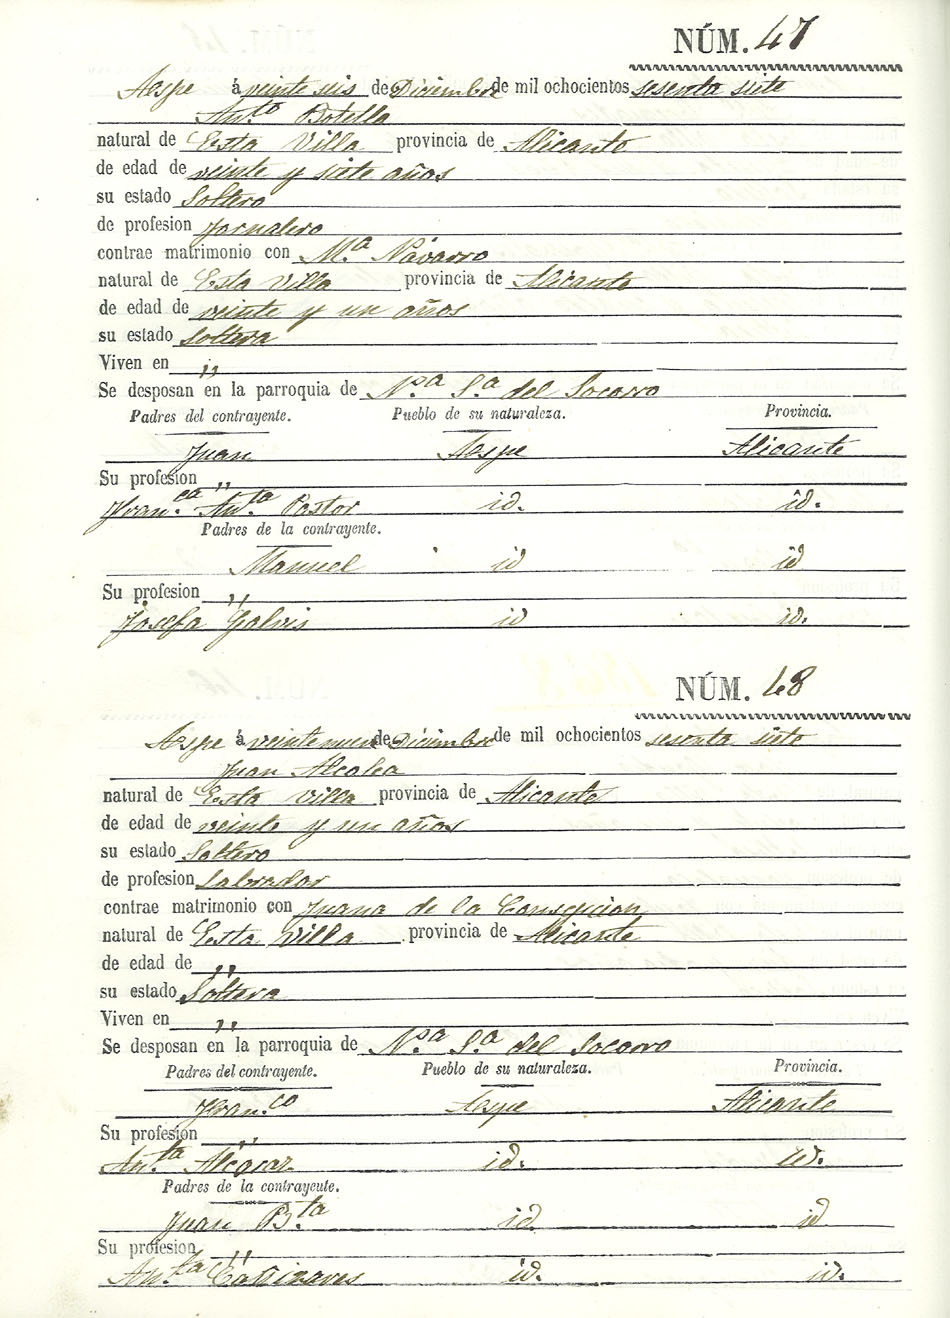 NÚM. 47
Aespe á veinte seis de Diciembre de mil ochocientos sesenta siete
Ant.º Botella
natural de Esta Villa provincia de Alicante
de edad de veinte y siete años
su estado Soltero
de profesion Jornalero
contrae matrimonio con M.ª Navarro
natural de Esta Villa provincia de Alicante
de edad de veinte y un años
su estado Soltera
Viven en ,,
Se desposan en la parroquia de N.ª S.ª del Socorro
Padres del contrayente. Pueblo de su naturaleza. Provincia.
Juan Aespe Alicante
Su profesion ,,
Fran.ca An.ta Pastor id. id.
Padres de la contrayente.
Manuel id id
Su profesion ,,
Josefa Galvis id id.
NÚM. 48
Aespe á veintenueve de Diciembre de mil ochocientos sesenta siete
Juan Alcolea
natural de Esta Villa provincia de Alicante
de edad de veinte y un años
su estado Soltero
de profesion Labrador
contrae matrimonio con Juana de la Consepcion
natural de Esta Villa provincia de Alicante
de edad de ,,
su estado Soltera
Viven en ,,
Se desposan en la parroquia de N.ª S.ª del Socorro
Padres del contrayente. Pueblo de su naturaleza. Provincia.
Fran.co Aespe Alicante
Su profesion ,,
An.ta Alcocar id. id.
Padres de la contrayente.
Juan B.ta id. id
Su profesion ,,
An.ta id. id.